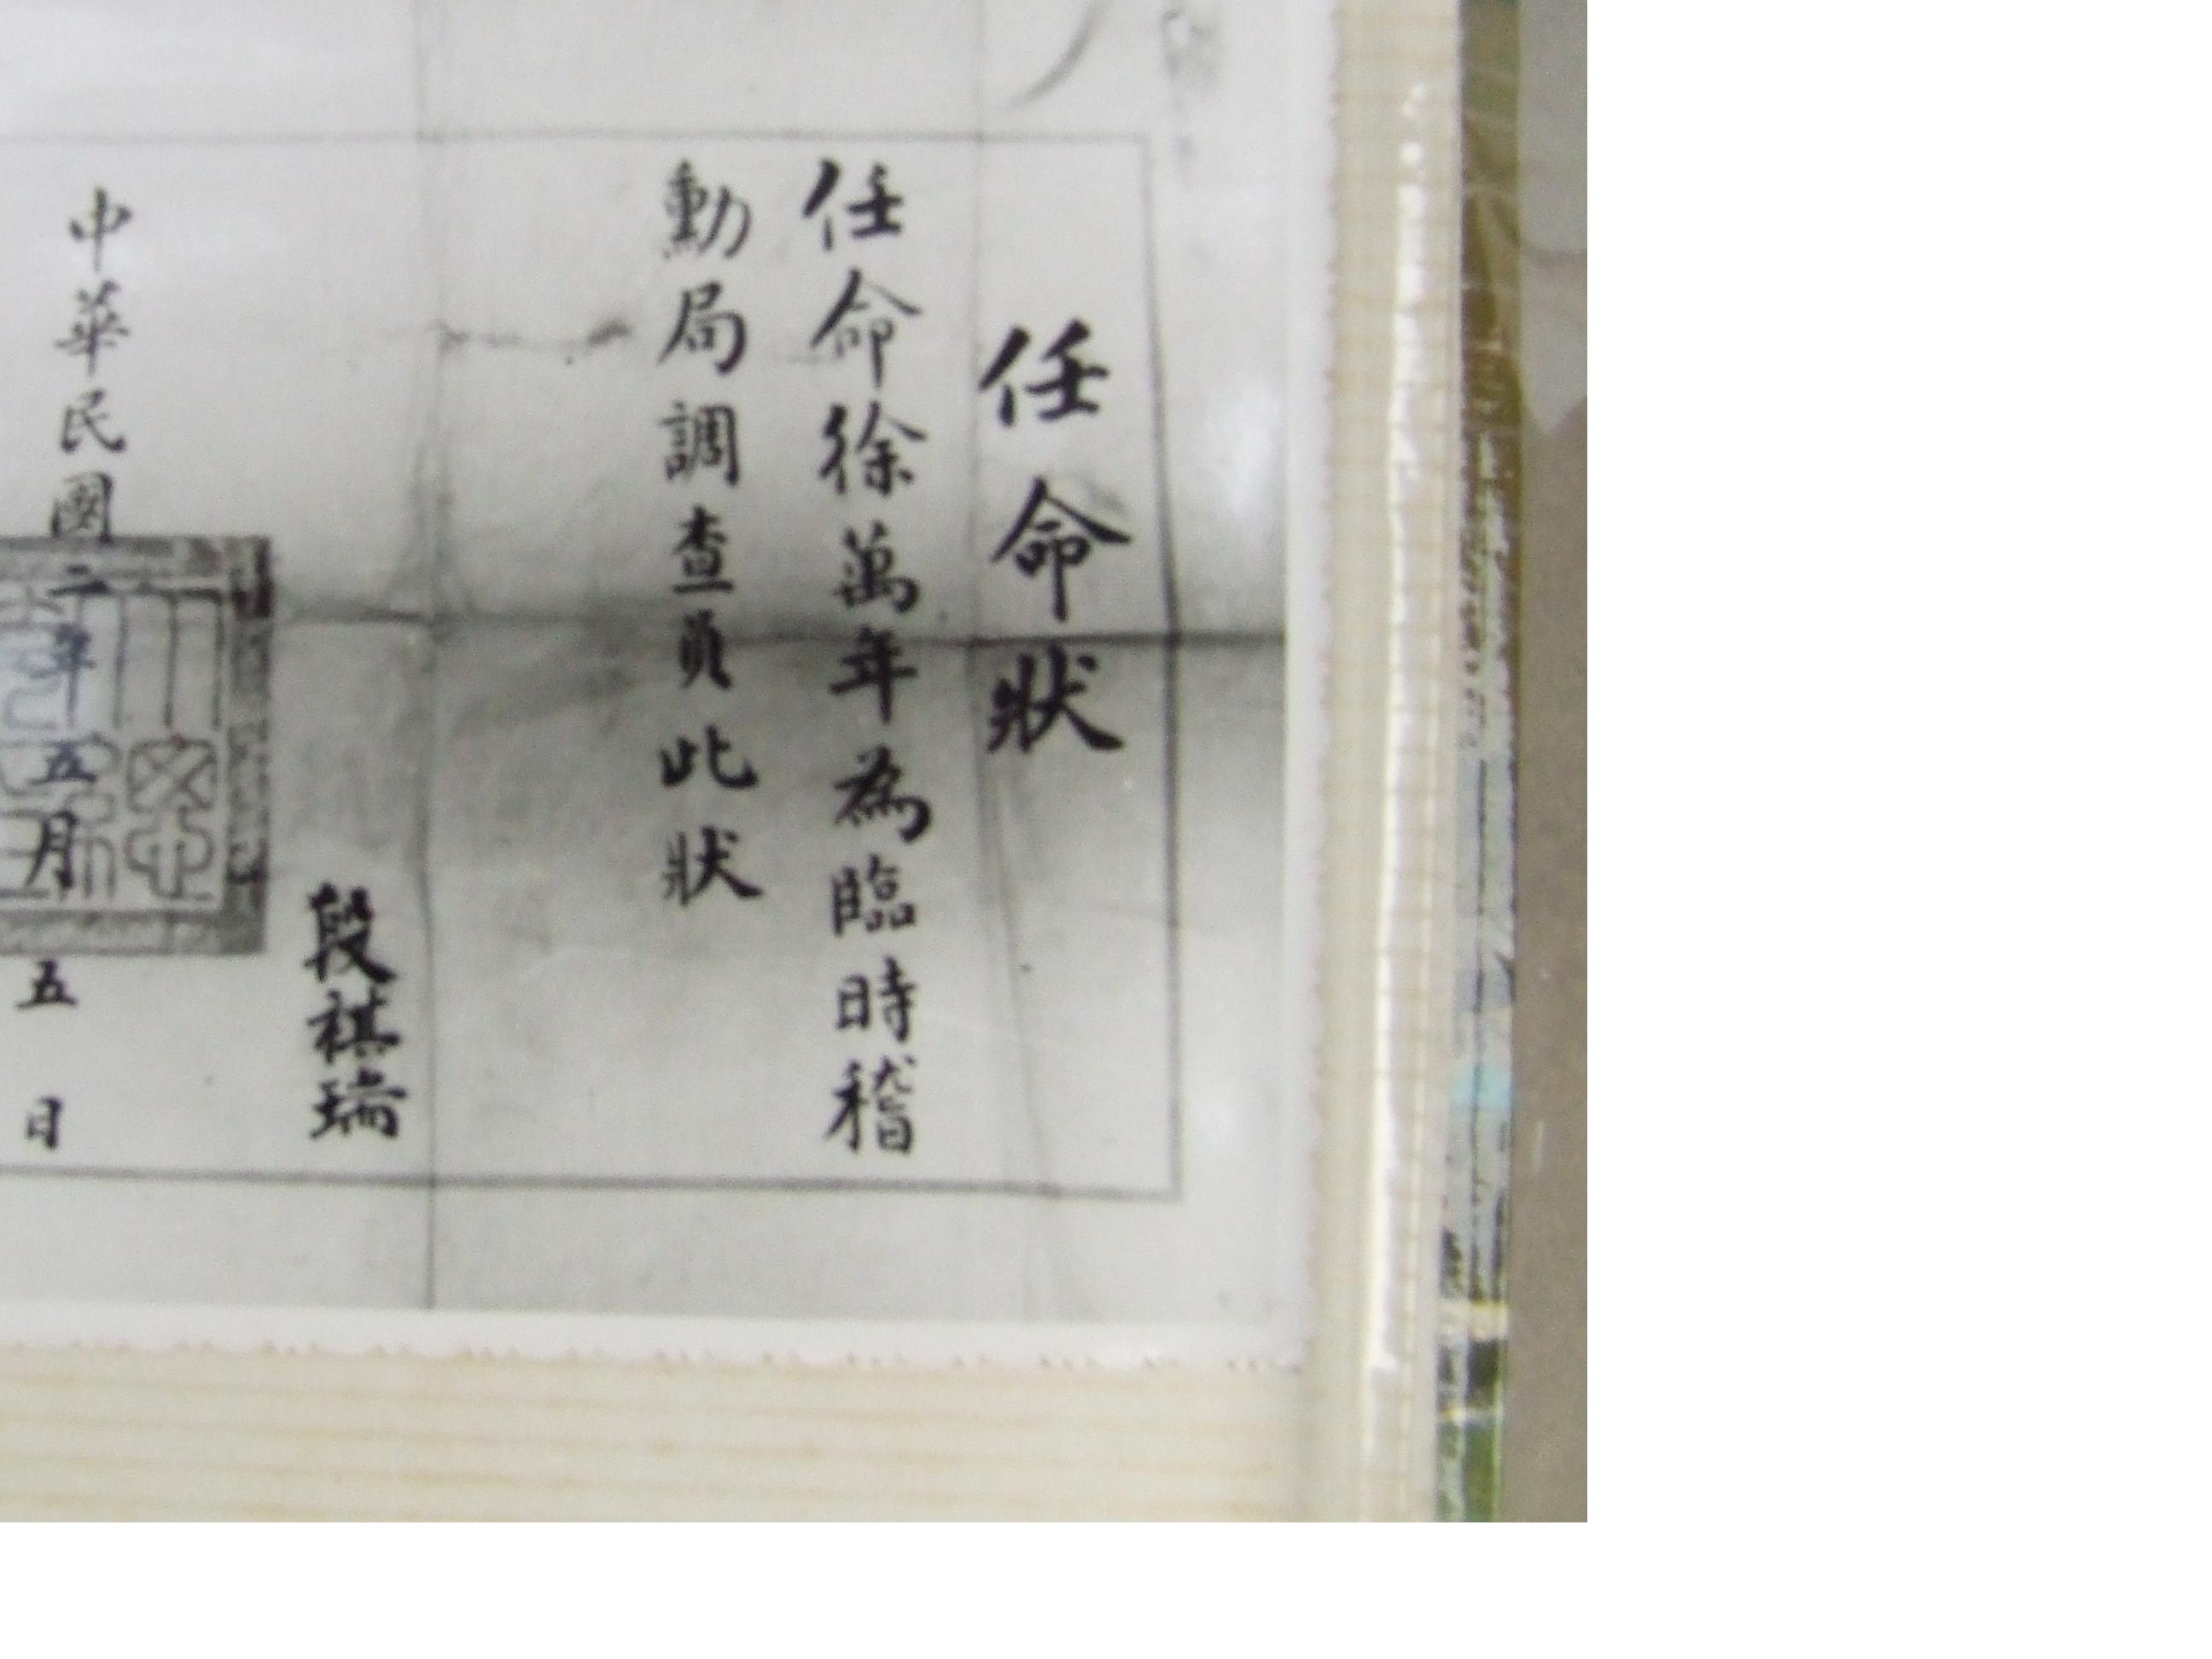 任命狀
任命徐萬年為臨時稽
勳局調查員此狀
段祺瑞
中華民國二年五月五日